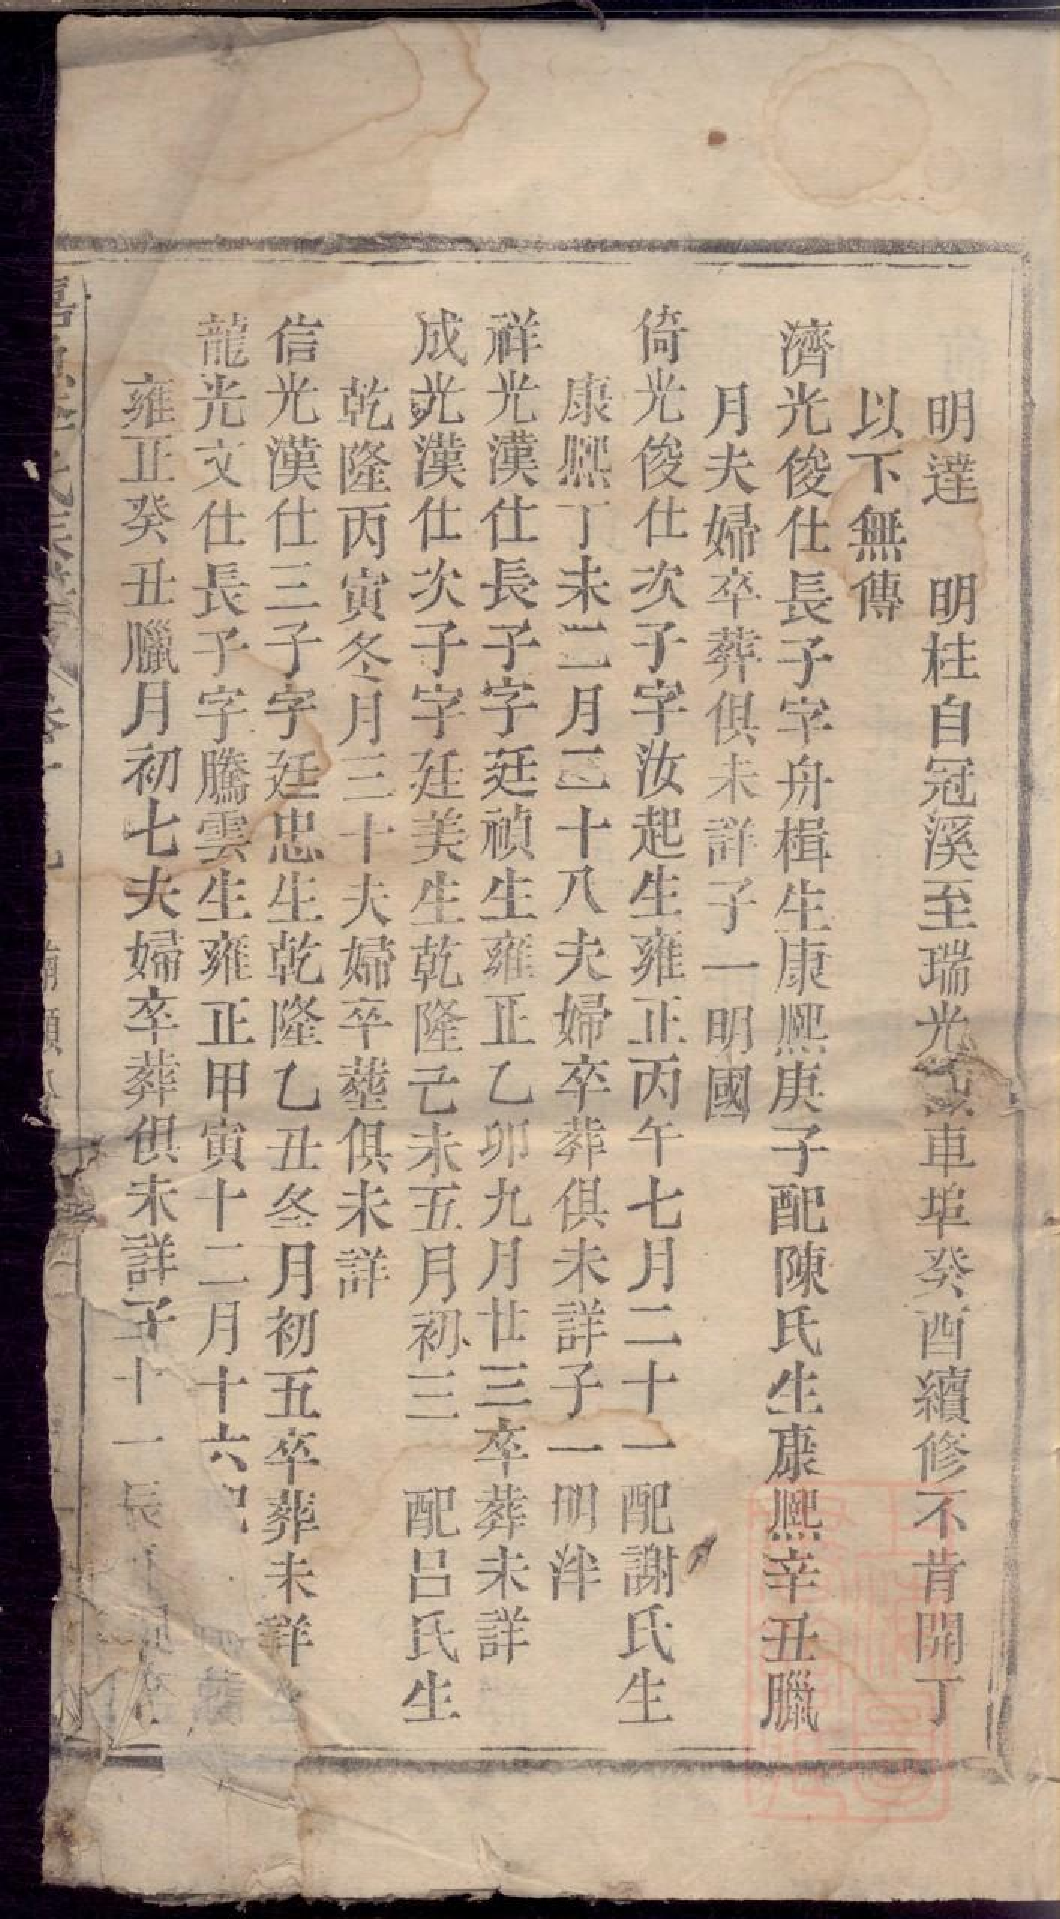 明達　明柱自冠溪至瑞光車埠癸酉續修不肯開丁
以下無傳
濟光俊仕長子字舟楫生康熙庚子配陳氏生康熙辛丑臘
月夫婦卒葬俱未詳子一明國
倚光俊仕次子字汝起生雍正丙午七月二十一配謝氏生
康熙丁未二月二十八夫婦卒葬俱未詳子一明泮
祥光漢仕長子字廷禎生雍正乙卯九月廿三卒葬未詳
成光漢仕次子字廷美生乾隆己未五月初三　配呂氏生
乾隆丙寅冬月三十夫婦卒塟俱未詳
信光漢仕三子字廷忠生乾隆乙丑冬月初五卒葬未詳
龍光文仕長子字騰雲生雍正甲寅十二月十六配
雍正癸丑臘月初七夫婦卒葬俱未詳子十一長